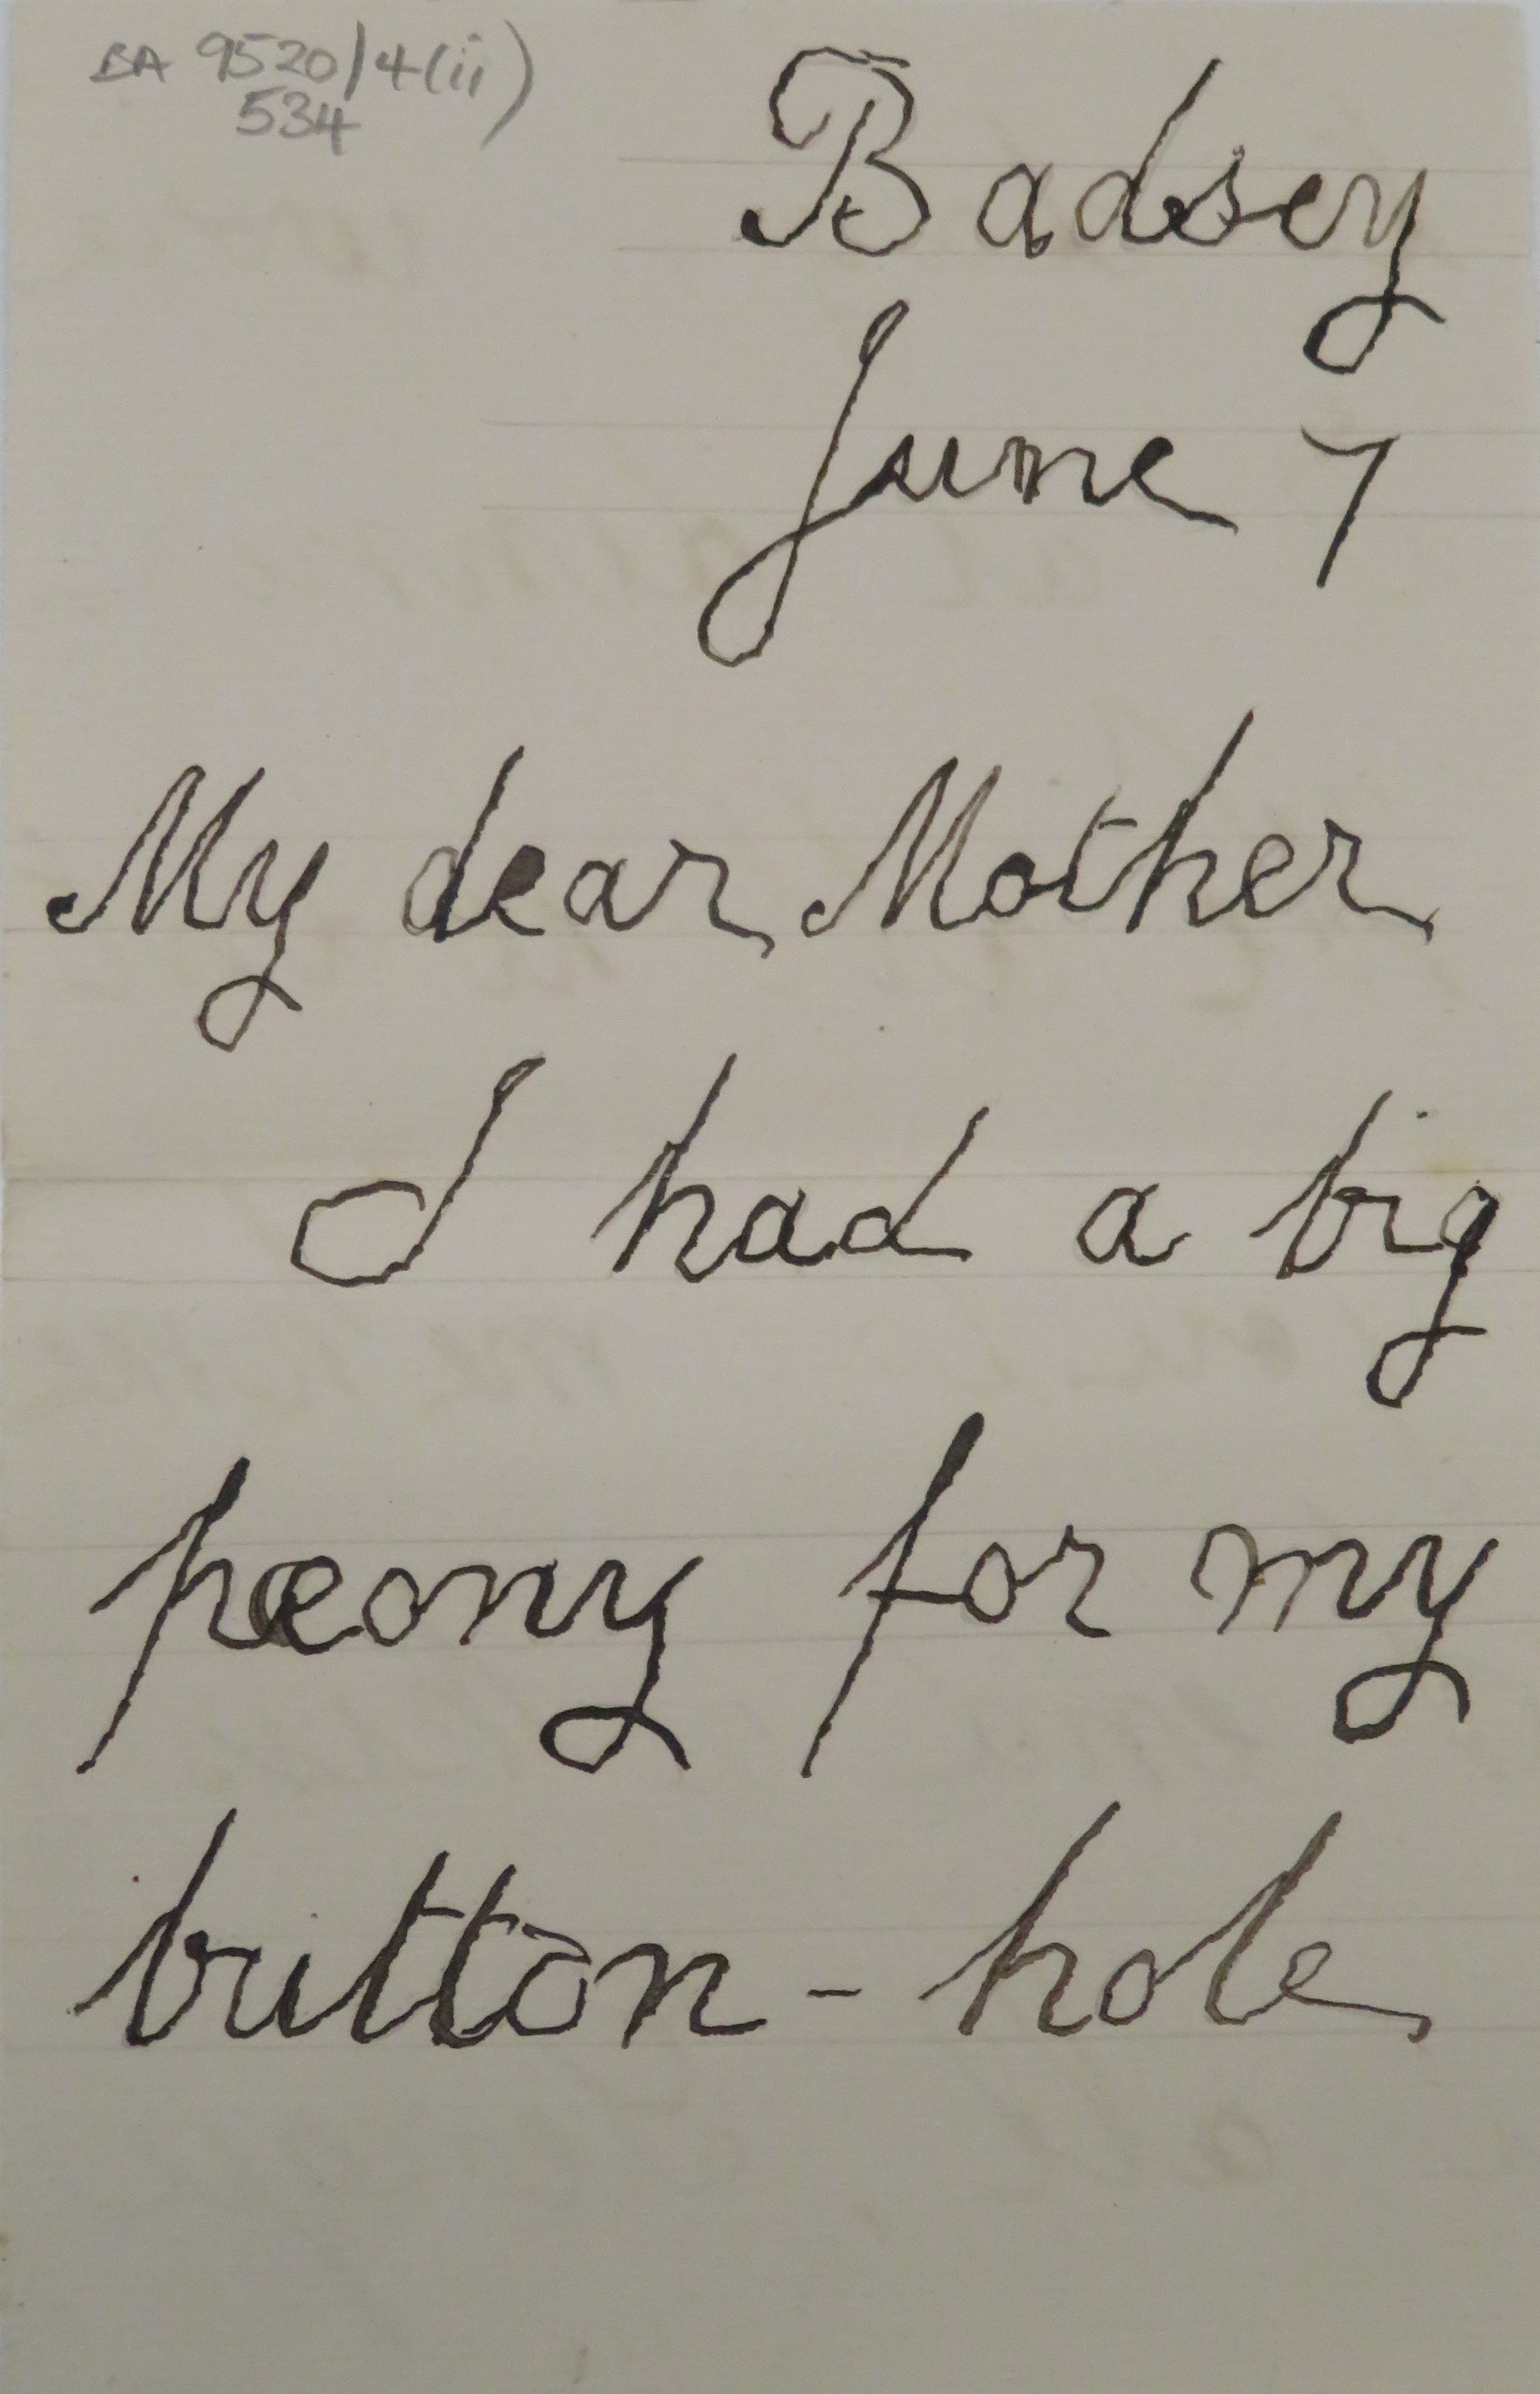 BA 9520/4(ii)
534
Badsey
June 7
My dear Mother
I had a big
pæony for my
button-hole